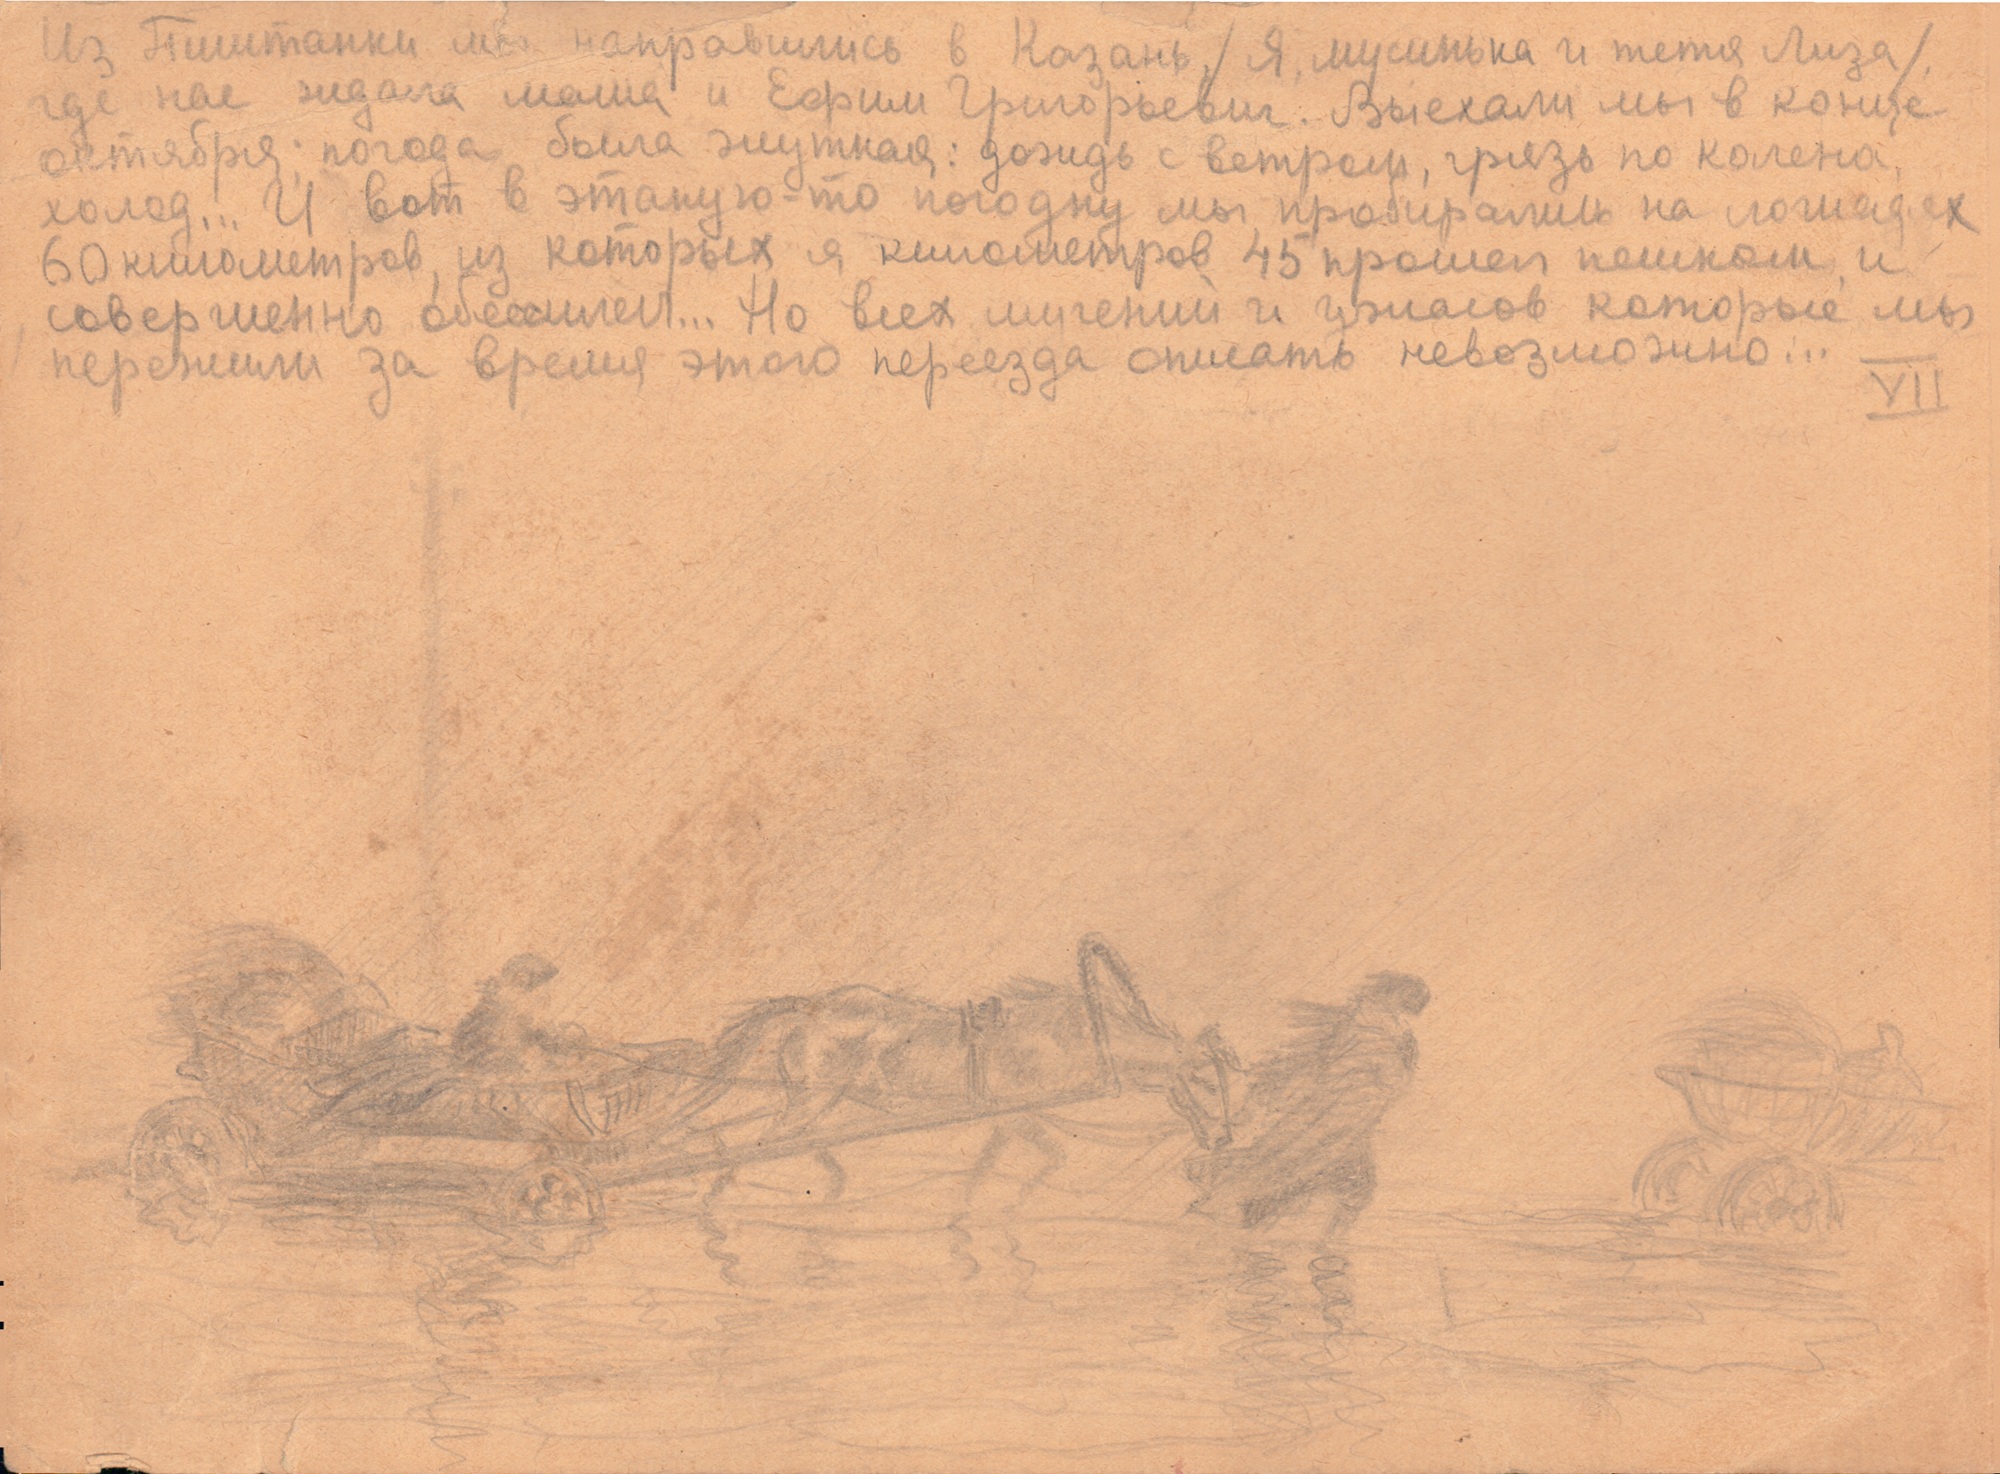 Из Пиштанки мы направились в Казань, /Я, мусинька и тетя Лиза/,
где нас ждала мама и Ефим Григорьевич. Выехали мы в конце
октября; погода была жуткая: дождь с ветром, грязь по колена,
холод... И вот в этакую-то погодку мы пробирались на лошадях
60 километров, из которых я километров 45 прошел пешком, и
совершенно обессилел... Но всех мучений и ужасов которые мы
пережили за время этого переезда описать невозможно...
VII